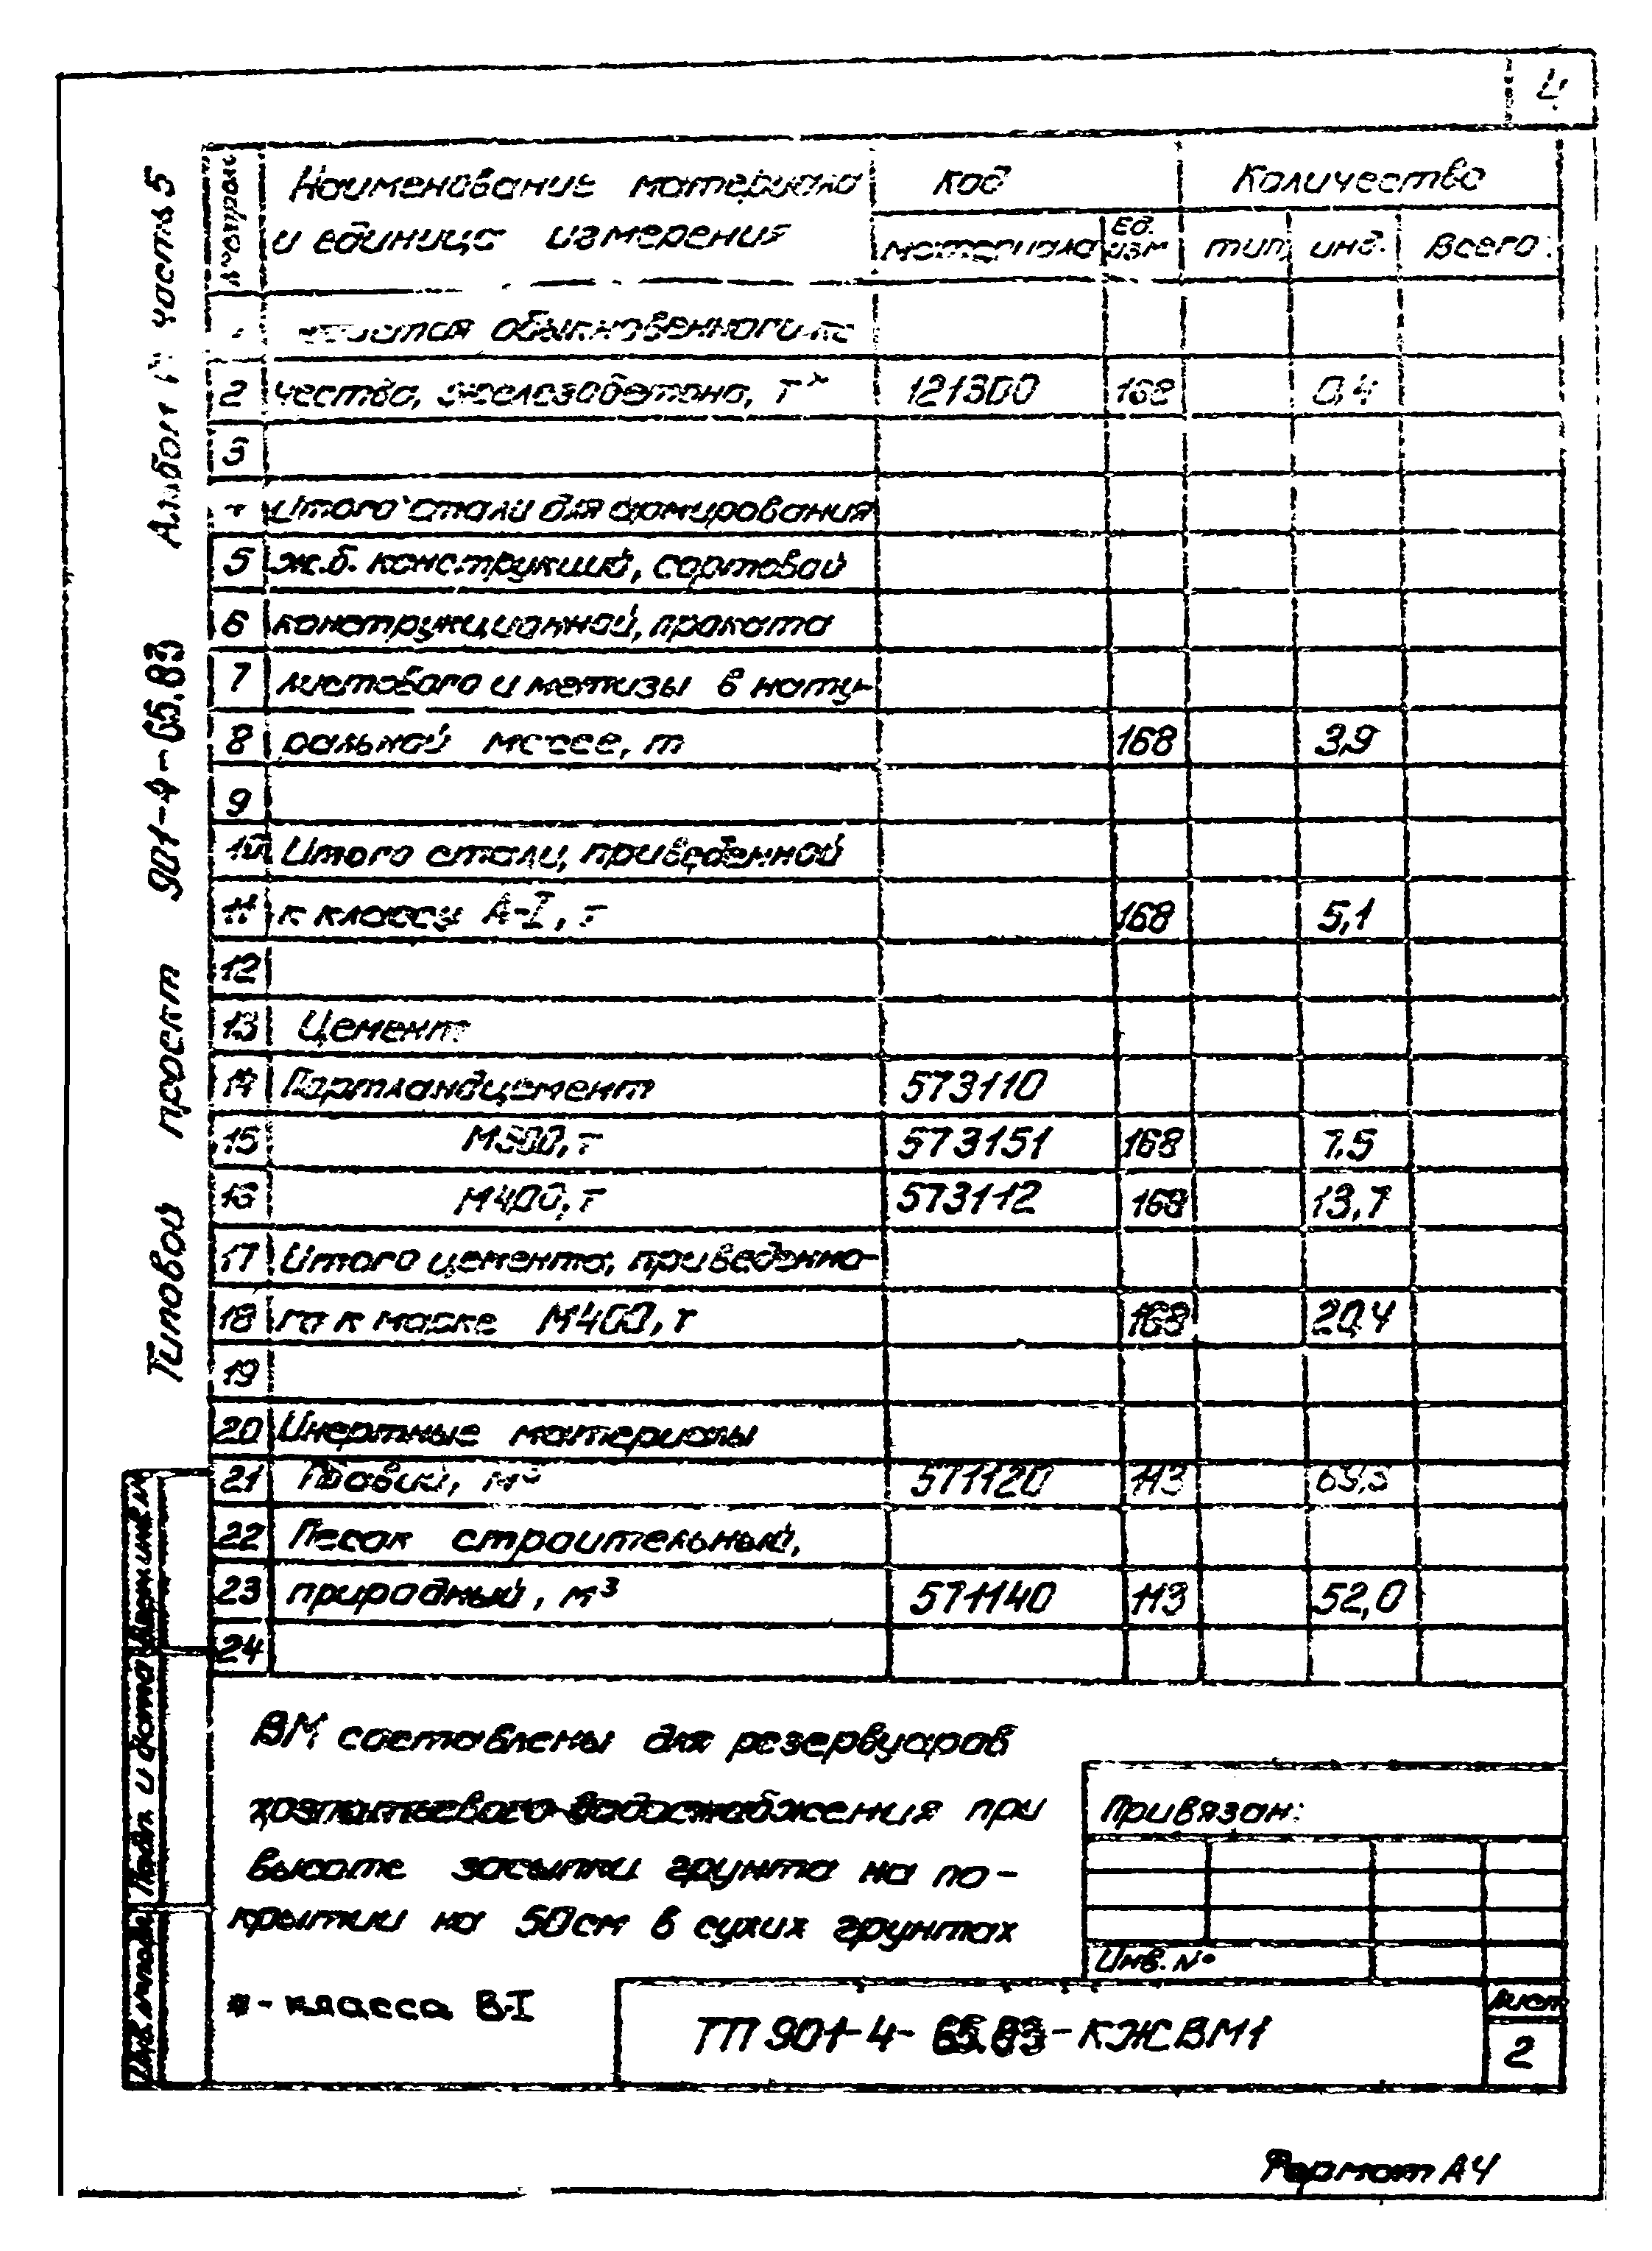 4
Типовой проект 901-4-65.83 Альбом часть 5
Наименование материала
и единица измерения
Код
Количество
материала
Ед. изм
тип. инд. Всего
обыкновенного ка-
2 чества, железобетона, т* 121300 168 0,4
3
Итого стали для армирования
5 ж.б. конструкций, сортовой
6 конструкционной, проката
7 листового и метизы в нату-
8 ральной массе, т 168 3,9
9
10 Итого стали, приведенной
11 к классу А-I, т 168 5,1
12
13 Цемент
14 Портландцемент 573110
15 М500, т 573151 168 7,5
16 М400, т 573112 168 13,7
17 Итого цемента, приведенно-
18 го к марке М400, т 168 20,4
19
20 Инертные материалы
21 Гравий, м³ 571120 113
22 Песок строительный,
23 природный, м³ 571140 113 52,0
24
ВМ составлены для резервуаров
хозпитьевого водоснабжения при
высоте засыпки грунта на по-
крытии на 50см в сухих грунтах
* - класса В-I
Привязан:
Инв. №
ТП 901-4-65.83-КЖ.ВМ1
Лист
2
Инв. № подл. Подп. и дата Взам. инв. №
Формат А4